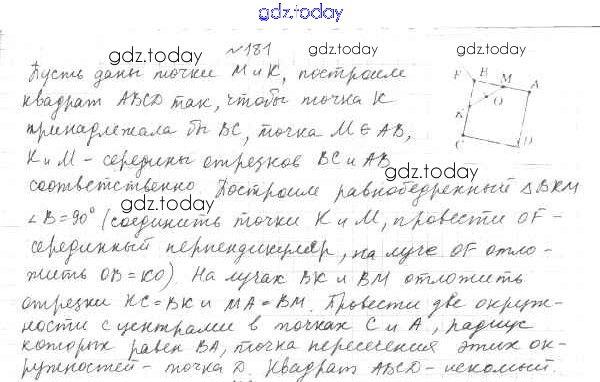 gdz.today
№181
gdz.today
gdz.today
Пусть даны точки M и K, построим
квадрат ABCD так, чтобы точка K
принадлежала бы BC, точка M ∈ AB,
K и M - середины отрезков BC и AB
gdz.today
соответственно. Построим равнобедренный △BKM
∠B=90° (соединить точки K и M, провести OF -
серединный перпендикуляр, на луче OF отло-
жить OB=KO). На лучах BK и BM отложить
отрезки KC=BK и MA=BM. Провести две окруж-
ности с центрами в точках C и A, радиус
которых равен BA, точка пересечения этих ок-
ружностей - точка D. Квадрат ABCD - искомый.
F B M A
O
K
C D
gdz.today
gdz.today
gdz.today